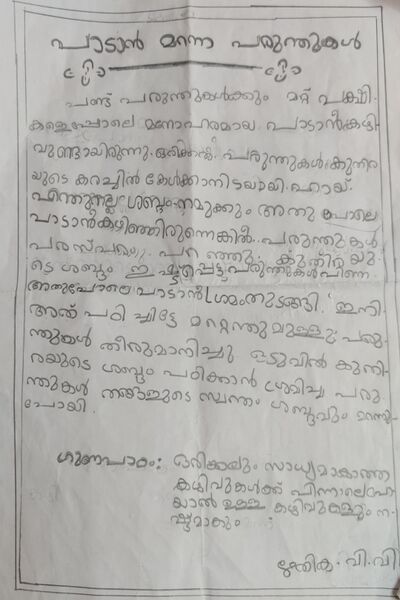 പാടാൻ മറന്ന പരുന്തുകൾ
പണ്ട് പരുന്തുകൾക്കും മറ്റ് പക്ഷി-
കളെപ്പോലെ മനോഹരമായ പാടാൻ കഴി-
വുണ്ടായിരുന്നു. ഒരിക്കൽ പരുന്തുകൾ കുതിര
യുടെ കരച്ചിൽ കേൾക്കാനിടയായി. ഹായ്
എന്തുനല്ല ശബ്ദം. നമുക്കും അതു പോലെ
പാടാൻ കഴിഞ്ഞിരുന്നെങ്കിൽ. പരുന്തുകൾ
പരസ്പരം പറഞ്ഞു. കുതിരയു
ടെ ശബ്ദം ഇഷ്ടപ്പെട്ട പരുന്തുകൾ പിന്നെ
അതുപോലെ പാടാൻ ശ്രമം തുടങ്ങി. ഇനി
അത് പഠിച്ചിട്ടേ മറ്റെന്തുമുള്ളു പരു
ന്തുകൾ തീരുമാനിച്ചു ഒടുവിൽ കുതി
രയുടെ ശബ്ദം പഠിക്കാൻ ശ്രമിച്ച പരു
ന്തുകൾ തങ്ങളുടെ സ്വന്തം ശബ്ദവും മറന്നു-
പോയി.
ഗുണപാഠം: ഒരിക്കലും സാധ്യമാകാത്ത
കഴിവുകൾക്ക് പിന്നാലെപോ
യാൽ ഉള്ള കഴിവുകളും ന-
ഷ്ടമാകും
വി. വി